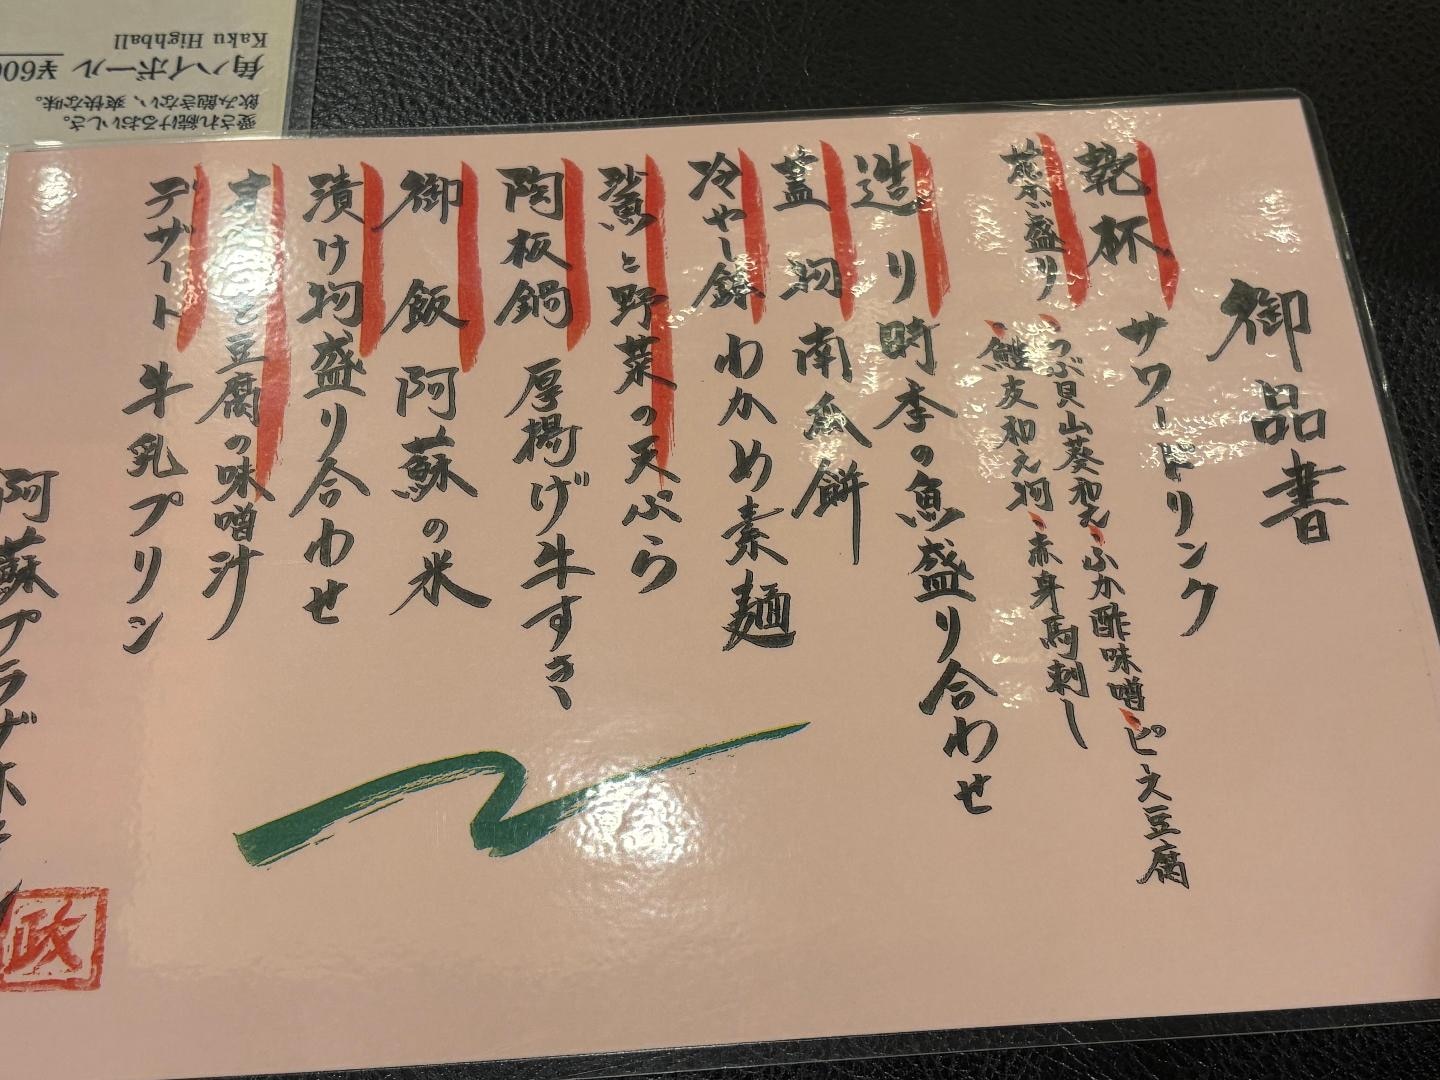 御品書
乾杯 サワードリンク
前菜盛り ・つぶ貝山葵和え・ふか酢味噌・ピース豆腐
・鮭皮和え物・赤身馬刺し
造り 時季の魚盛り合わせ
蓋物 南瓜餅
冷やし鉢 わかめ素麺
鯊と野菜の天ぷら
陶板鍋 厚揚げ牛すき
御飯 阿蘇の米
漬け物盛り合わせ
と豆腐の味噌汁
デザート 牛乳プリン
阿蘇プラザホテル
政
愛され続けるおいしさ。
飲み飽きない、爽快な味。
角ハイボール ¥600
Kaku Highball